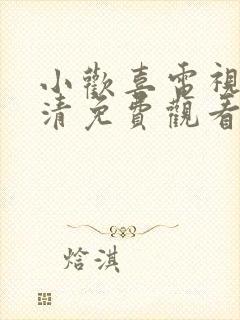 小歡喜電視
清免費觀看
焓淇